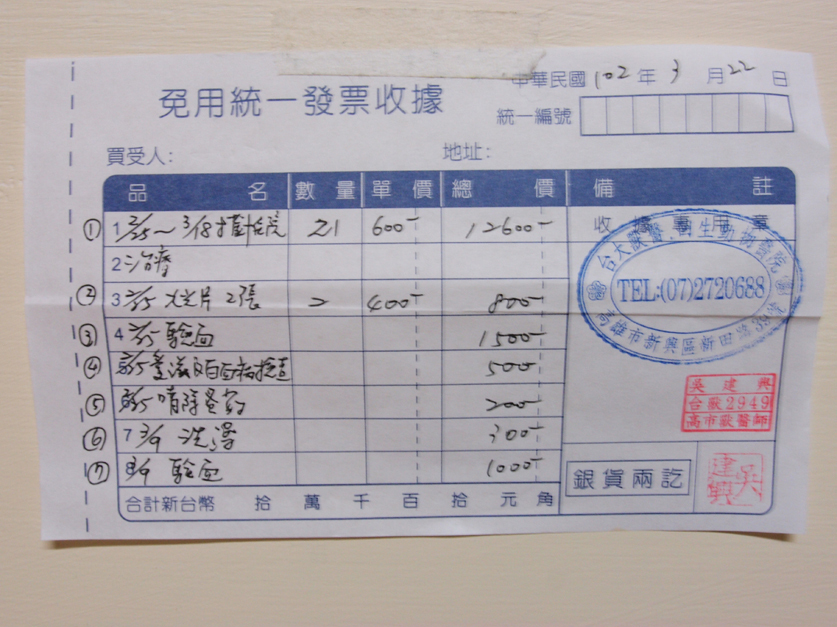 免用統一發票收據
中華民國 102 年 3 月 22 日
統一編號
買受人: 地址:
品名 數量 單價 總價 備註
① 1 2/25~3/18 住院 21 600- 12600- 收據專用章
2 治療
② 3 2/25 X光片 2張 2 400- 800-
③ 4 2/25 驗血 1500-
④ 500-
⑤ 200-
⑥ 7 3/9 洗澡 300-
⑦ 8 3/9 驗血 1000-
合計新台幣 拾 萬 千 百 拾 元 角
台大獸醫 動物醫院
TEL:(07)2720688
高雄市新興區新田路
吳建興
台獸2949
高市獸醫師
銀貨兩訖
吳建興